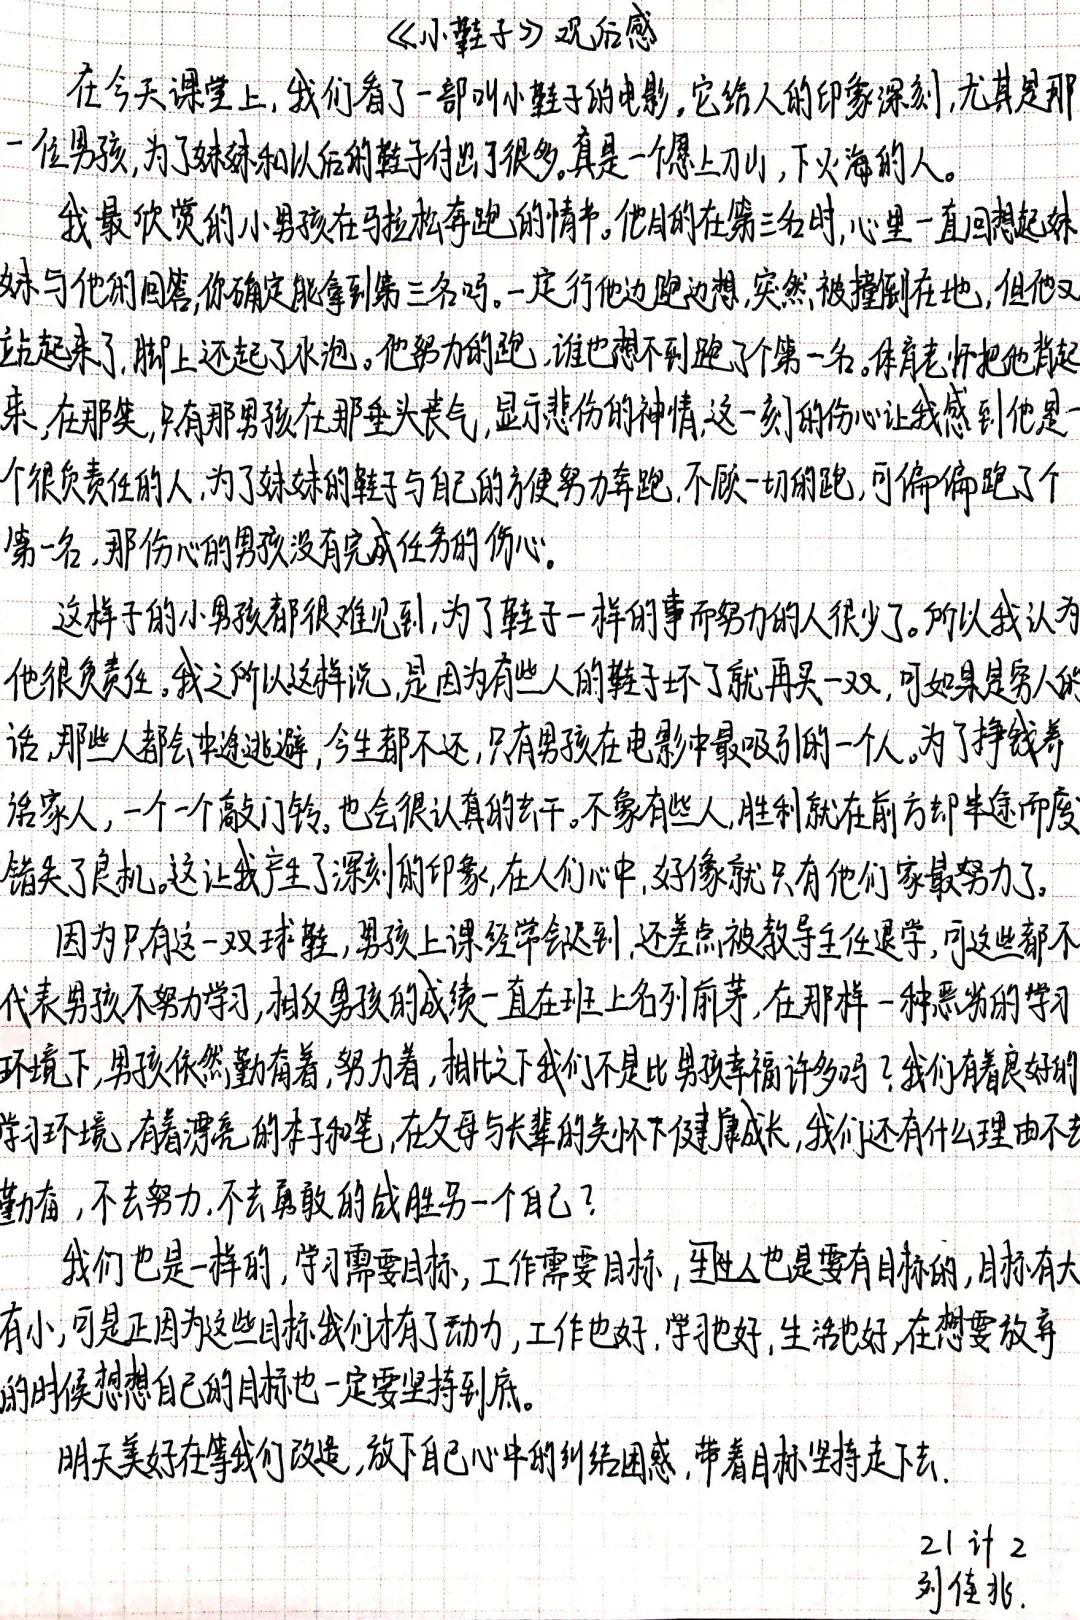 《小鞋子》观后感
在今天课堂上,我们看了一部叫小鞋子的电影,它给人的印象深刻,尤其是那
一位男孩,为了妹妹和以后的鞋子付出了很多。真是一个愿上刀山,下火海的人。
我最欣赏的小男孩在马拉松奔跑的情节。他目的在第三名时,心里一直回想起妹
妹与他的回答,你确定能拿到第三名吗。一定行他边跑边想,突然,被撞倒在地,但他又
站起来了,脚上还起了水泡。他努力的跑,谁也想不到跑了个第一名。体育老师把他背起
来,在那笑,只有那男孩在那垂头丧气,显示悲伤的神情,这一刻的伤心让我感到他是一
个很负责任的人,为了妹妹的鞋子与自己的方便努力奔跑,不顾一切的跑,可偏偏跑了个
第一名,那伤心的男孩没有完成任务的伤心。
这样子的小男孩都很难见到,为了鞋子一样的事而努力的人很少了。所以我认为
他很负责任。我之所以这样说,是因为有些人的鞋子坏了就再买一双,可如果是穷人的
话,那些人都会中途逃避,今生都不还,只有男孩在电影中最吸引的一个人。为了挣钱养
活家人,一个一个敲门铃,也会很认真的去干。不象有些人,胜利就在前方却半途而废
错失了良机。这让我产生了深刻的印象,在人们心中,好像就只有他们家最努力了。
因为只有这一双球鞋,男孩上课经常会迟到,还差点被教导主任退学,可这些都不
代表男孩不努力学习,相反男孩的成绩一直在班上名列前茅,在那样一种恶劣的学习
环境下,男孩依然勤奋着,努力着,相比之下我们不是比男孩幸福许多吗?我们有着良好的
学习环境,有着漂亮的本子和笔,在父母与长辈的关怀下健康成长,我们还有什么理由不去
勤奋,不去努力,不去勇敢的战胜另一个自己?
我们也是一样的,学习需要目标,工作需要目标,人也是要有目标的,目标有大
有小,可是正因为这些目标我们才有了动力,工作也好,学习也好,生活也好,在想要放弃
的时候想想自己的目标也一定要坚持到底。
明天美好在等我们改造,放下自己心中的纠结困惑,带着目标坚持走下去.
21计2
刘佳兆.